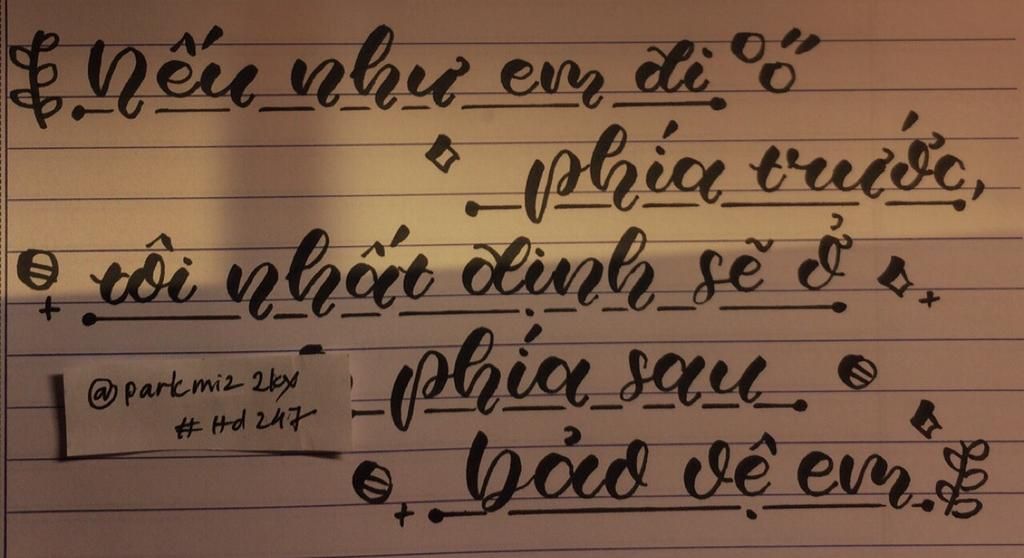 Nếu như em đi ở
phía trước,
tôi nhất định sẽ ở
phía sau
@parkmiz2kx
#Hd247
bảo vệ em